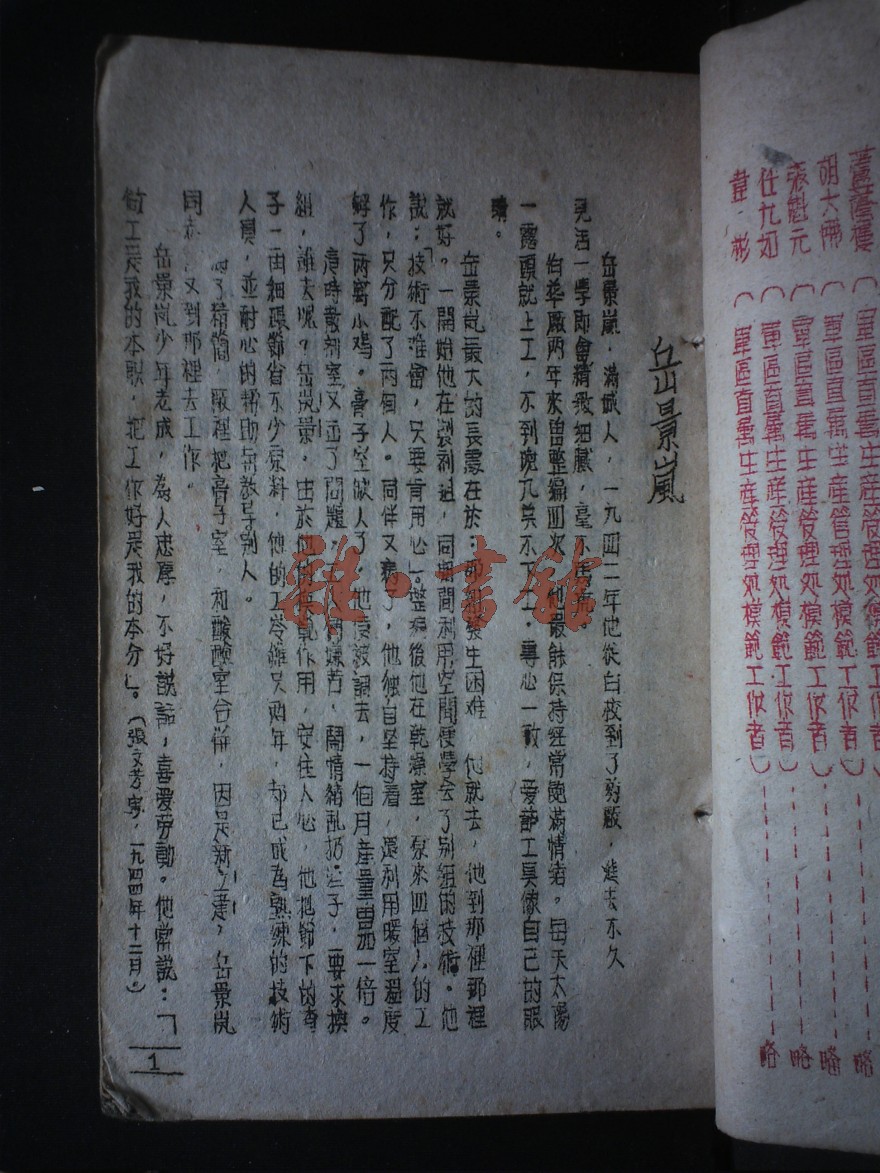 蘆蔭樓 (軍區直屬生產管理処模範工作者)------略
胡大佛 (軍區直屬生產管理処模範工作者)------略
張魁元 (軍區直屬生產管理処模範工作者)------略
任九如 (軍區直屬生產管理処模範工作者)------略
韋·彬 (軍區直屬生產管理処模範工作者)------略
岳景嵐
岳景嵐,滿城人,一九四二年他從白校到了葯廠,進去不久
見活一學即會精致細膩,毫不馬
伯華厰两年來曾整編四次,他最能保持經常飽滿情绪。每天太陽
一露頭就上工,不到晚九㸃不下工,專心一致,爱護工具像自己的眼
睛。
岳景嵐最大的長處在於:那裡發生困难 他就去,他到那裡那裡
就好。一開始他在製剂組,同時間利用空間便學会了别組的技術。他
說:「技術不难會,只要肯用心」。整編後他在乾燥室,原來四個人的工
作,只分配了两個人。同伴又病了,他独自坚持着,還利用暖室温度
孵了两窝小鸡。膏子室缺人了,他便被調去,一個月產量增加一倍。
當時散剂室又出了問題, 嫌苦,鬧情緒乱扔 子,要求換
組,誰去呢?岳嵐景,由於他 模範作用,安住人心,他把篩下的渣
子一再細碾節省不少原料,他的工令雖只两年,却已成為熟練的技術
人員,並耐心的帮助与教导别人。
了精簡,厰裡把膏子室,和酸醶室合併,因是新立建,岳景嵐
同志又到那裡去工作。
岳景嵐少年老成,為人忠厚,不好說話,喜爱劳動。他常說:「
做工是我的本职,把工作好是我的本分」。(張文芳寫,一九四四年十二月。)
1
雜·書館